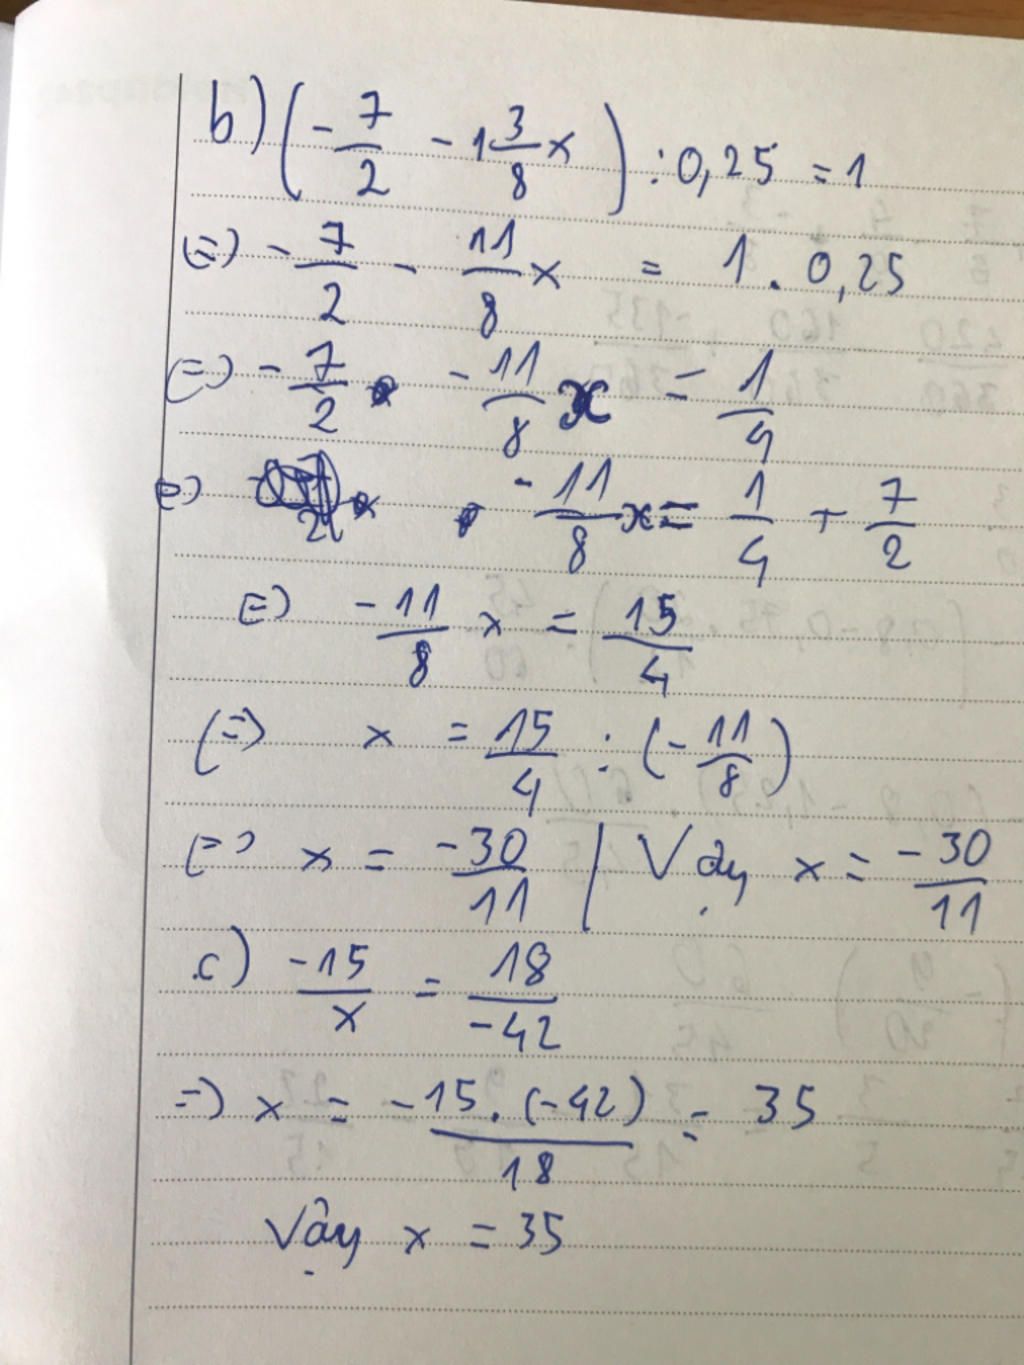 b) (-7/2 - 1 3/8 x) : 0,25 = 1
(=) -7/2 - 11/8 x = 1 . 0,25
(=) -7/2 - 11/8 x = 1/4
(=) -11/8 x = 1/4 + 7/2
(=) -11/8 x = 15/4
(=) x = 15/4 : (-11/8)
(=) x = -30/11 | Vậy x = -30/11
c) -15/x = 18/-42
=) x = -15.(-42)/18 = 35
Vậy x = 35